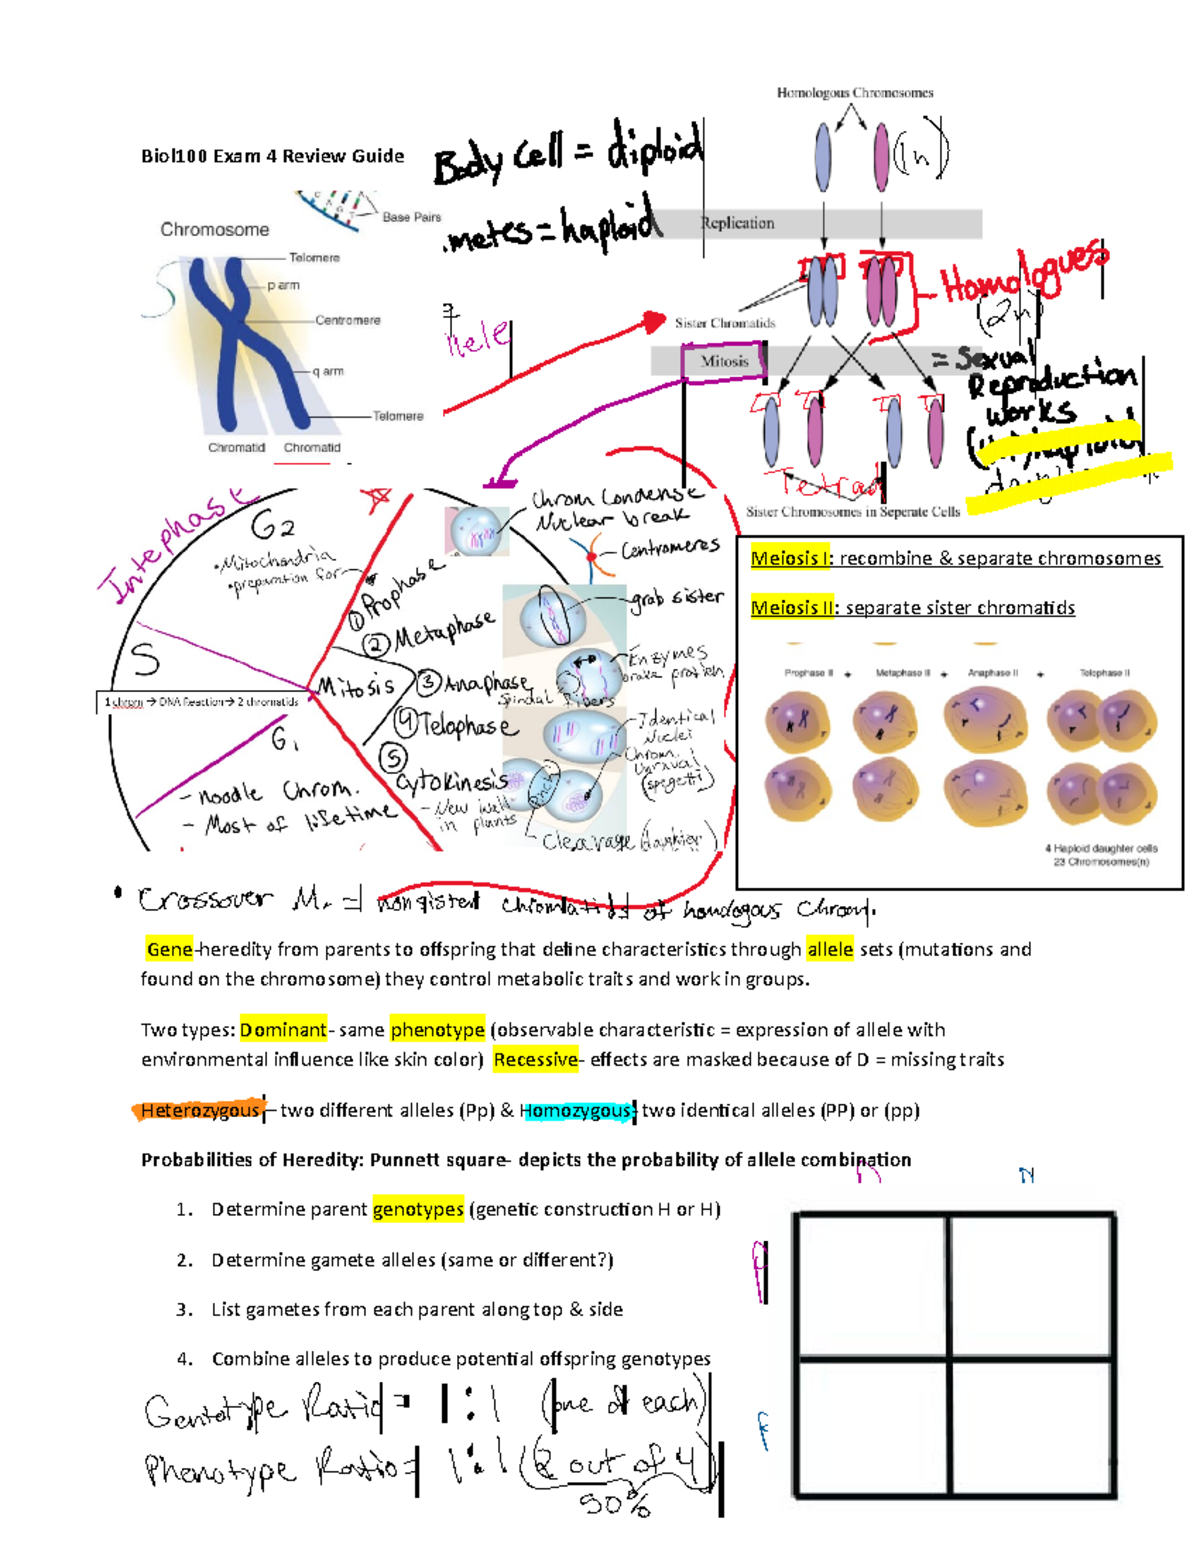 Homologous Chromosomes
(1n)
Biol100 Exam 4 Review Guide
Body Cell = diploid
.metes = haploid
Replication
Base Pairs
Chromosome
Telomere
p arm
Centromere
q arm
Telomere
Chromatid Chromatid
Homologues
(2n)
Sister Chromatids
Mitosis
= Sexual
Reproduction
works
Tetrad
Sister Chromosomes in Seperate Cells
Intephase
G2
• Mitochondria
• preparation for
S
1 chrom → DNA Reaction→ 2 chromatids
G1
- noodle Chrom.
- Most of lifetime
Mitosis
① Prophase
② Metaphase
③ Anaphase
Spindal Fibers
④ Telophase
⑤ Cytokinesis
- New wall
in plants
Chrom Condense
Nuclear break
Centromeres
grab sister
Enzymes
brake protien
Identical
Nuclei
Chrom.
Unraval
(spegetti)
Cleavage (daughter)
Meiosis I: recombine & separate chromosomes
Meiosis II: separate sister chromatids
Prophase II + Metaphase II + Anaphase II + Telophase II
4 Haploid daughter cells
23 Chromosomes(n)
• Crossover M. = nonsister chromatids of homologous Chrom.
Gene-heredity from parents to offspring that define characteristics through allele sets (mutations and
found on the chromosome) they control metabolic traits and work in groups.
Two types: Dominant- same phenotype (observable characteristic = expression of allele with
environmental influence like skin color) Recessive- effects are masked because of D = missing traits
Heterozygous – two different alleles (Pp) & Homozygous- two identical alleles (PP) or (pp)
Probabilities of Heredity: Punnett square- depicts the probability of allele combination
1. Determine parent genotypes (genetic construction H or H)
2. Determine gamete alleles (same or different?)
3. List gametes from each parent along top & side
4. Combine alleles to produce potential offspring genotypes
Gentotype Ratio = 1:1 (one of each)
Phenotype Ratio = 1:1 (2 out of 4)
50%